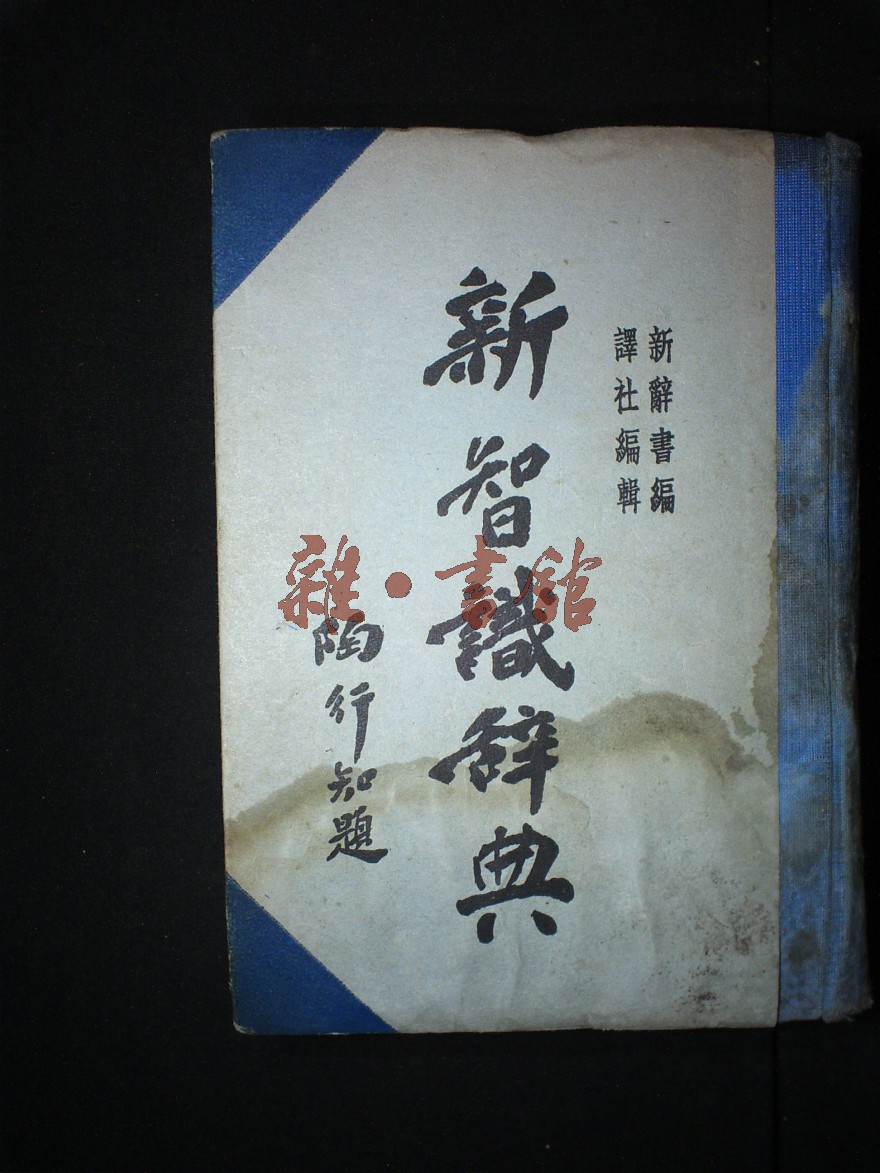 新辭書編
譯社編輯
新智識辭典
陶行知題
雜·書館